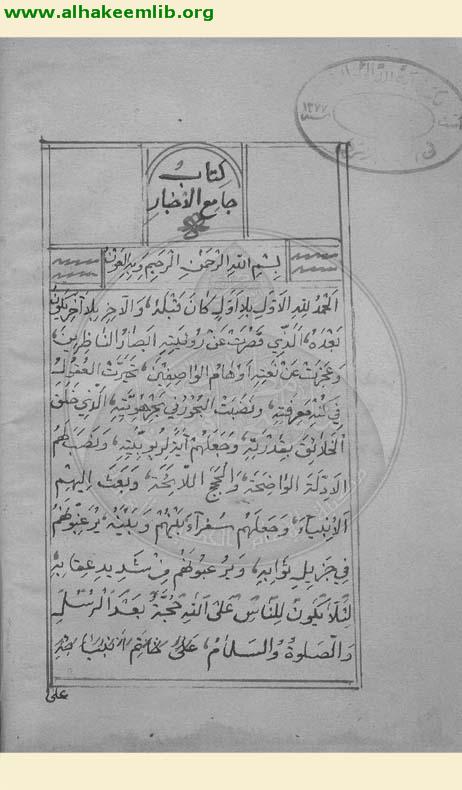 www.alhakeemlib.org
كتاب
جامع الأخبار
بِسْمِ اللهِ الرَّحْمٰنِ الرَّحِيمِ وَبِهِ العَوْنُ
اَلْحَمْدُ لِلّٰهِ الاَوَّلِ بِلاَ اَوَّلٍ كَانَ قَبْلَهُ، وَالاٰخِرِ بِلاَ اٰخِرٍ يَكُونُ
بَعْدَهُ، الَّذِي قَصُرَتْ عَنْ رُؤْيَتِهِ اَبْصَارُ النَّاظِرِينَ،
وَعَجَزَتْ عَنْ نَعْتِهِ اَوْهَامُ الوَاصِفِينَ، تَحَيَّرَتْ العُقُولُ
فِي كُنْهِ مَعْرِفَتِهِ، وَنَضَبَتْ البُحُورُ فِي بَحْرِ هُوِيَّتِهِ، الَّذِي خَلَقَ
الْخَلاَئِقَ بِقُدْرَتِهِ، وَجَعَلَهُمْ اٰيَةً لِرُبُوبِيَّتِهِ، وَنَصَبَ لَهُمُ
الاَدِلَّةَ الوَاضِحَةَ، وَالْحُجَجَ اللاَّئِحَةَ، وَبَعَثَ اِلَيْهِمُ
الاَنْبِيَاءَ، وَجَعَلَهُمْ سُفَرَاءَ بَيْنَهُمْ وَبَيْنَهُ، يُرَغِّبُونَهُمْ
فِي جَزِيلِ ثَوَابِهِ، وَيُرْعِبُونَهُمْ مِنْ شَدِيدِ عِقَابِهِ،
لِئَلاَّ يَكُونَ لِلنَّاسِ عَلَى اللهِ حُجَّةٌ بَعْدَ الرُّسُلِ
وَالصَّلٰوةُ وَالسَّلاَمُ، عَلَى خَاتَمِ اَنْبِيَائِهِ
على
١٣٧٧